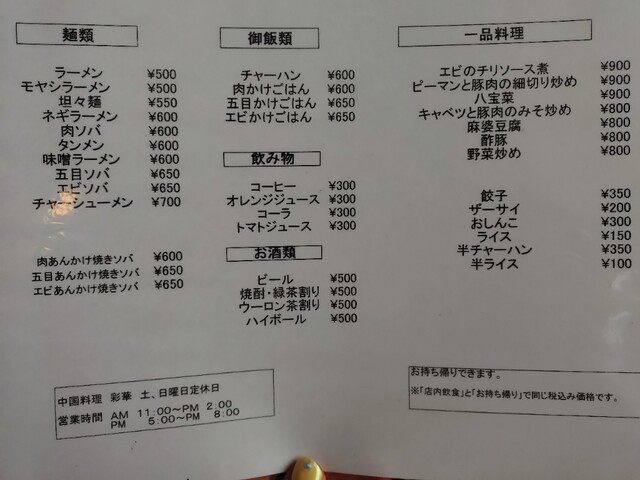 麺類
ラーメン ¥500
モヤシラーメン ¥500
坦々麺 ¥550
ネギラーメン ¥600
肉ソバ ¥600
タンメン ¥600
味噌ラーメン ¥600
五目ソバ ¥650
エビソバ ¥650
チャーシューメン ¥700
肉あんかけ焼きソバ ¥600
五目あんかけ焼きソバ ¥650
エビあんかけ焼きソバ ¥650
御飯類
チャーハン ¥600
肉かけごはん ¥600
五目かけごはん ¥650
エビかけごはん ¥650
飲み物
コーヒー ¥300
オレンジジュース ¥300
コーラ ¥300
トマトジュース ¥300
お酒類
ビール ¥500
焼酎・緑茶割り ¥500
ウーロン茶割り ¥500
ハイボール ¥500
一品料理
エビのチリソース煮 ¥900
ピーマンと豚肉の細切り炒め ¥900
八宝菜 ¥900
キャベツと豚肉のみそ炒め ¥800
麻婆豆腐 ¥800
酢豚 ¥800
野菜炒め ¥800
餃子 ¥350
ザーサイ ¥200
おしんこ ¥300
ライス ¥150
半チャーハン ¥350
半ライス ¥100
中国料理 彩華 土、日曜日定休日
営業時間 AM 11:00～PM 2:00
PM 5:00～PM 8:00
お持ち帰りできます。
※「店内飲食」と「お持ち帰り」で同じ税込み価格です。